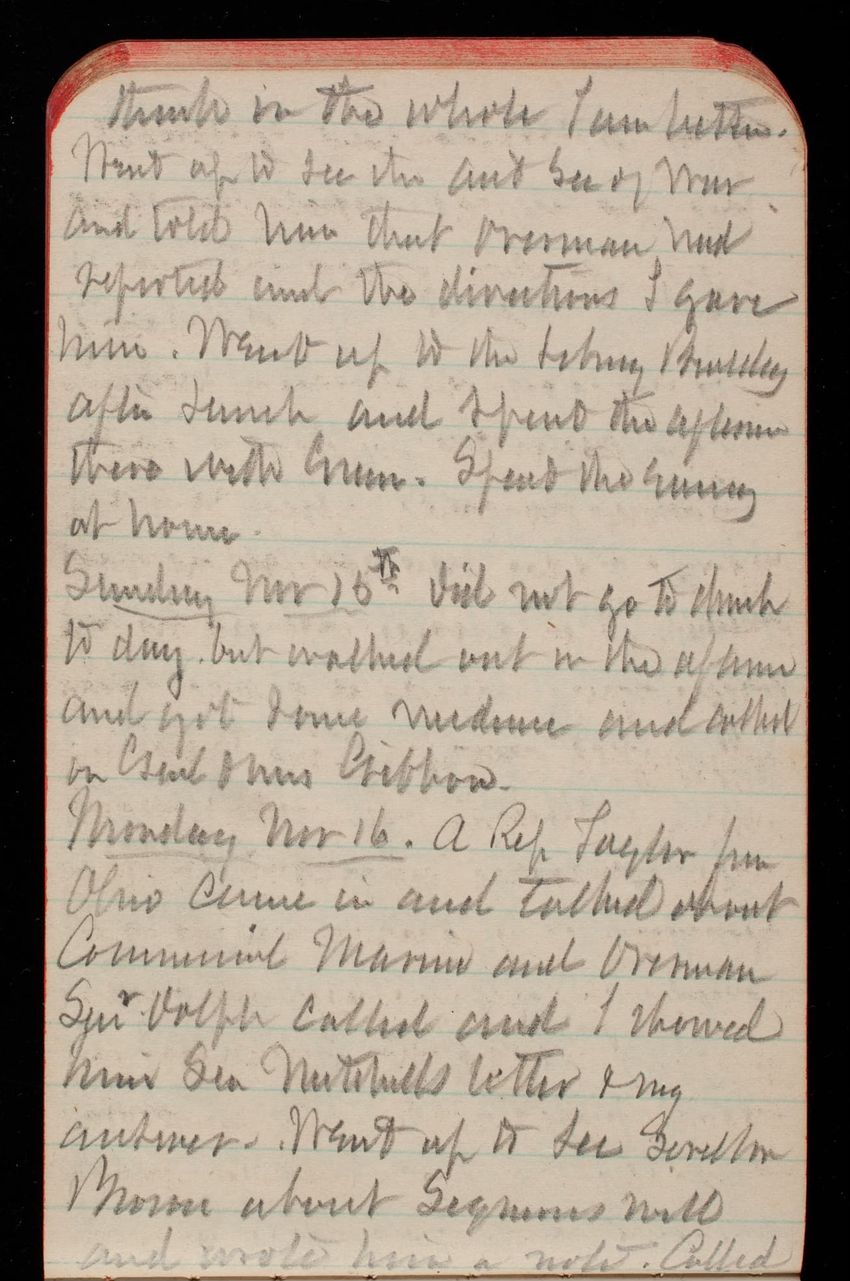 think in the whole I am better.
Went up to see the act Sec of War
and told him that Overman had
reported and the directions I gave
him. Went up to the Library Building
after lunch and spent the afternoon
there with Green. Spent the evening
at home.
Sunday Nov 15th Did not go to church
to day. but walked out in the afternoon
and got some medicine and called
on Genl & Mrs Gibbon.
Monday Nov 16. A Rep Taylor from
Ohio came in and talked about
Commercial Marine and Overman
Senr Dolph called and I showed
him Sen Mitchells letter & my
answer. Went up to see
about will
and wrote him a note. Called